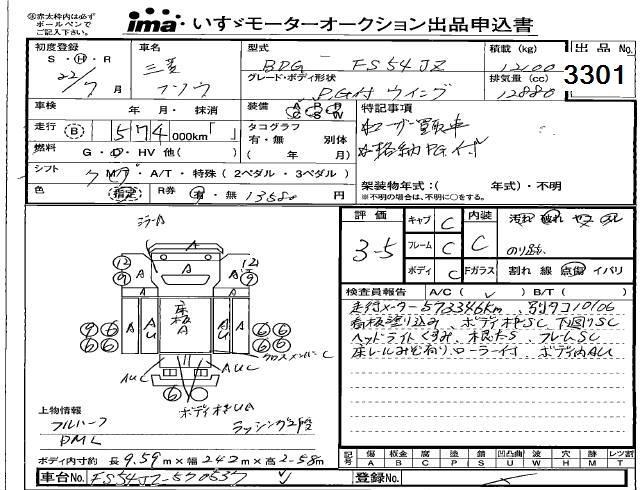 ㊟赤太枠内は必ず
ボールペンで
ご記入下さい。
ima いすゞモーターオークション出品申込書
初度登録 車名 型式 積載(kg) 出品No.
S・H・R 三菱 BDG - FS54JZ 12100 3301
22/7月 フソウ グレード・ボディ形状 排気量(cc)
P.G付 ウイング 12880
車検 年 月・抹消 装備 特記事項
走行 B 574 000km タコグラフ ユーザー買取車
有・無 別体 格納PG付
燃料 G・D・HV 他( ) ( 年 月)
シフト 7 MT・A/T・特殊(2ペダル・3ペダル) 架装物年式:( 年式)・不明
色 指定 R券 有・無 13580 ※不明の場合は、不明に○をする。
評価 キャブ C 内装
3-5 フレーム C C のり跡
ボディ C Fガラス 割れ 線 点傷 イパリ
検査員報告 A/C( ) B/T( )
走行メーター573346km、別タコ10/06
看板塗り込み、ボディ木SC 下廻りSC
ヘッドライトくすみ、フレームSC
床レールみぞ有り、ローラー付 ボディ内AU
ミラーA
12 12
9 A A A 9
A AU 床板A AU A
9 6 6 6
6 6 6 6
クロスメンバーC
AUC AUC
6
ボディ木UA
上物情報
フルハーフ ラッシング2段
PML
ボディ内寸約 長9.59m×幅242m×高2-58m
記号 傷 板金 腐 塗 錆 凹凸曲 波 穴 跡 レツ打
A B C P S U W H M T
車台No. FS54JZ-570537 登録No.